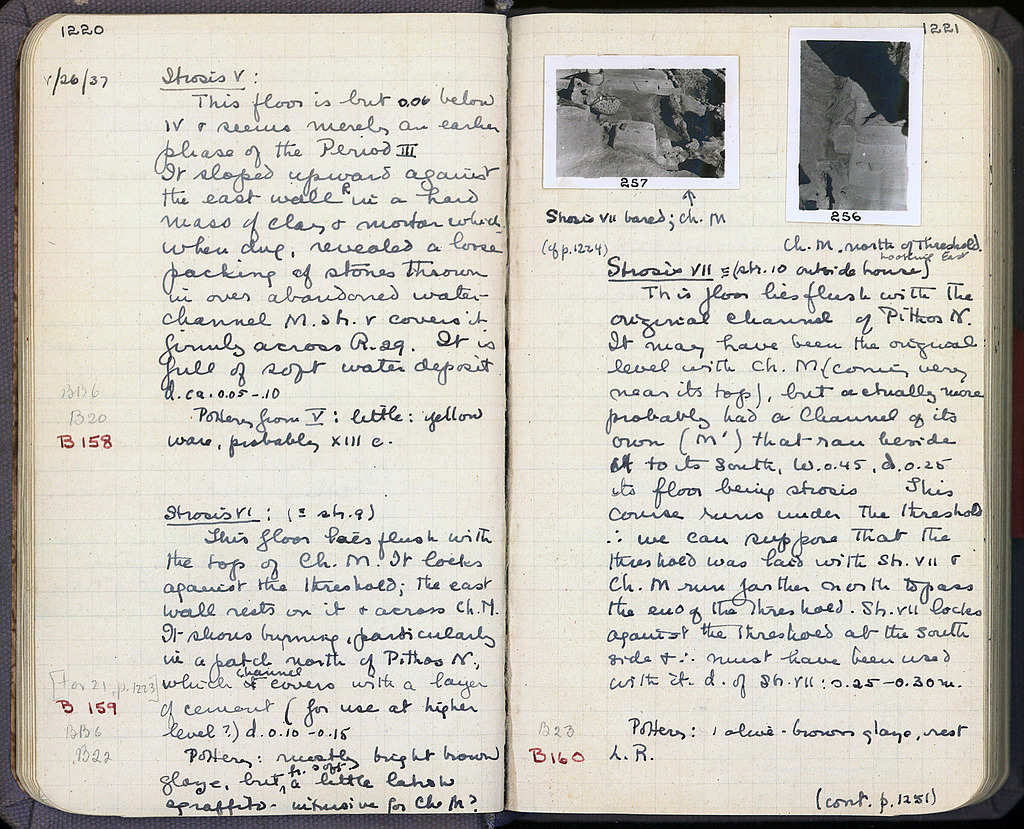 1220
V/26/37
Strosis V:
This floor is but 0.06 below
IV & seems merely an earlier
phase of the Period III
It sloped upward against
the east wall in a hard
mass of clay & mortar which,
when dug, revealed a loose
packing of stones thrown
in over abandoned water-
channel M. Str. V covers it
firmly across R. 29. It is
full of soft water deposit
d. ca. 0.05-.10
BB6
B20
Pottery from V: little: yellow
B 158
ware, probably XIII c.
Strosis VI: (= str. 9)
This floor lies flush with
the top of Ch. M. It locks
against the threshold; the east
wall rests on it & across Ch. M.
It shows burning, particularly
in a patch north of Pithos N,
channel
[For 21, p. 1223]
which it covers with a layer
B 159
of cement (for use at higher
BB6
level?) d. 0.10-0.15
B22
Pottery: mostly bright brown
glaze, but a little
sgraffito - intrusive for Ch. M?
1221
257
256
Strosis VII bared; Ch. M
(cf p. 1224)
Ch. M. north of threshold.
Looking East
Strosis VII = (str. 10 outside house)
This floor lies flush with the
original channel of Pithos N.
It may have been the original
level with Ch. M (coming very
near its top), but actually more
probably had a Channel of its
own (M') that ran beside
it to its South, W. 0.45, d. 0.25
its floor being strosis This
course runs under the threshold
∴ we can suppose that the
threshold was laid with Str. VII &
Ch. M run farther north to pass
the end of the threshold. Str. VII locks
against the threshold at the south
side & ∴ must have been used
with it. d. of Str. VII: 0.25-0.30m.
B23
Pottery: 1 olive-brown glaze, rest
B160
L. R.
(cont. p. 1251)